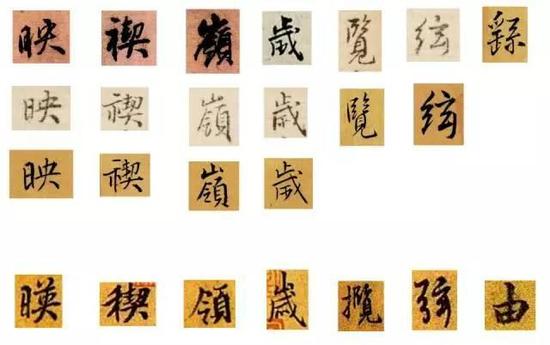 映 禊 嶺 歲 覽 絃 繇
映 禊 嶺 歲 覽 絃
映 禊 嶺 歲
暎 稧 領 嵗 攬 弦 由